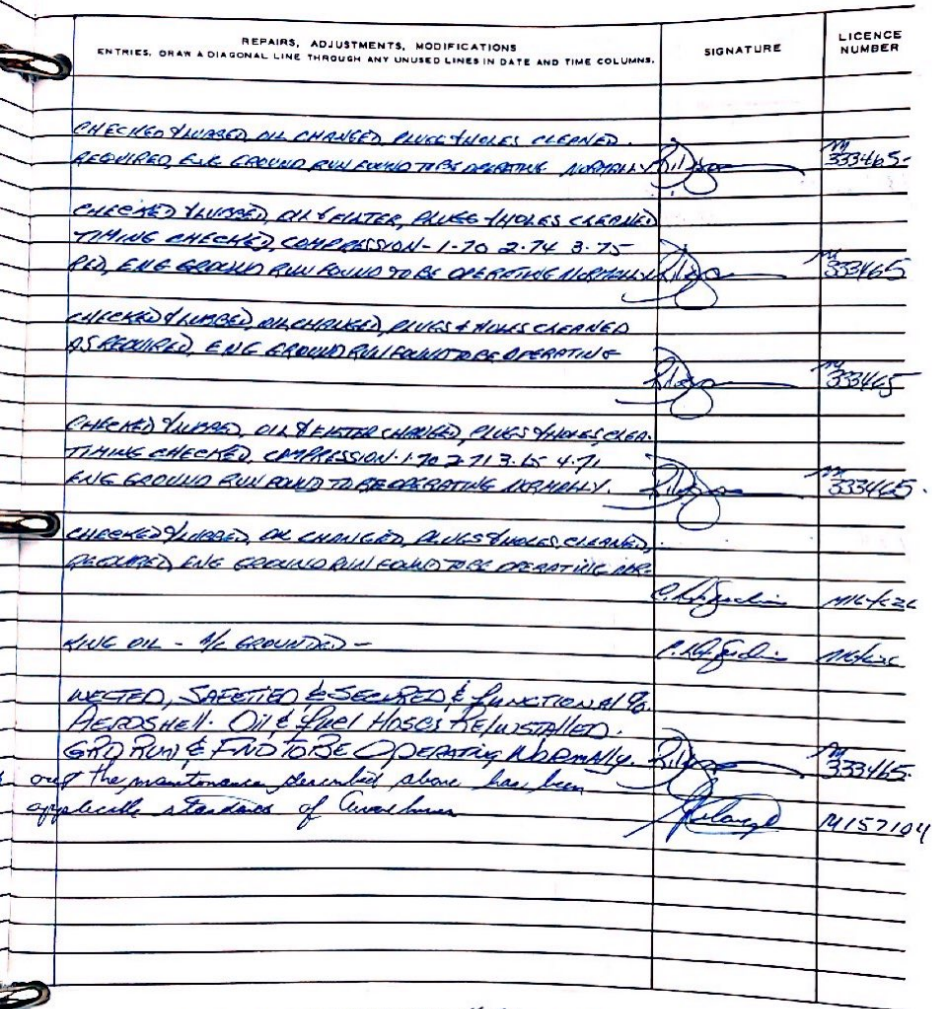 REPAIRS, ADJUSTMENTS, MODIFICATIONS
ENTRIES. DRAW A DIAGONAL LINE THROUGH ANY UNUSED LINES IN DATE AND TIME COLUMNS.
SIGNATURE
LICENCE NUMBER
CHECKED & LUBBED, OIL CHANGED, PLUGS & HOLES CLEANED.
REQUIRED, ENG GROUND RUN FOUND TO BE OPERATING NORMALLY
M 333465-
CHECKED & LUBBED, OIL & FILTER, PLUGS & HOLES CLEANED
TIMING CHECKED, COMPRESSION- 1-70 2-74 3-75
ENG GROUND RUN FOUND TO BE OPERATING NORMALLY
M 333465
CHECKED & LUBBED, OIL CHANGED, PLUGS & HOLES CLEANED
AS REQUIRED, ENG GROUND RUN FOUND TO BE OPERATING
M 333465
CHECKED & LUBBED, OIL & FILTER CHANGED, PLUGS & HOLES, CLEA.
TIMING CHECKED, COMPRESSION. 1-70 2-71 3-65 4-71
ENG GROUND RUN FOUND TO BE OPERATING NORMALLY.
M 333465.
CHECKED & LUBBED, OIL CHANGED, PLUGS & HOLES CLEANED,
REQUIRED, ENG GROUND RUN FOUND TO BE OPERATING NOR-
KING OIL - A/C GROUNDED -
NECTED, SAFETIED & SECURED & FUNCTIONAL
AEROSHELL. OIL & FUEL HOSES RE/INSTALLED.
GRD RUN & FND TO BE OPERATING NORMALLY.
M 333465.
out the maintenance described above has been
applicable standards of
M157104